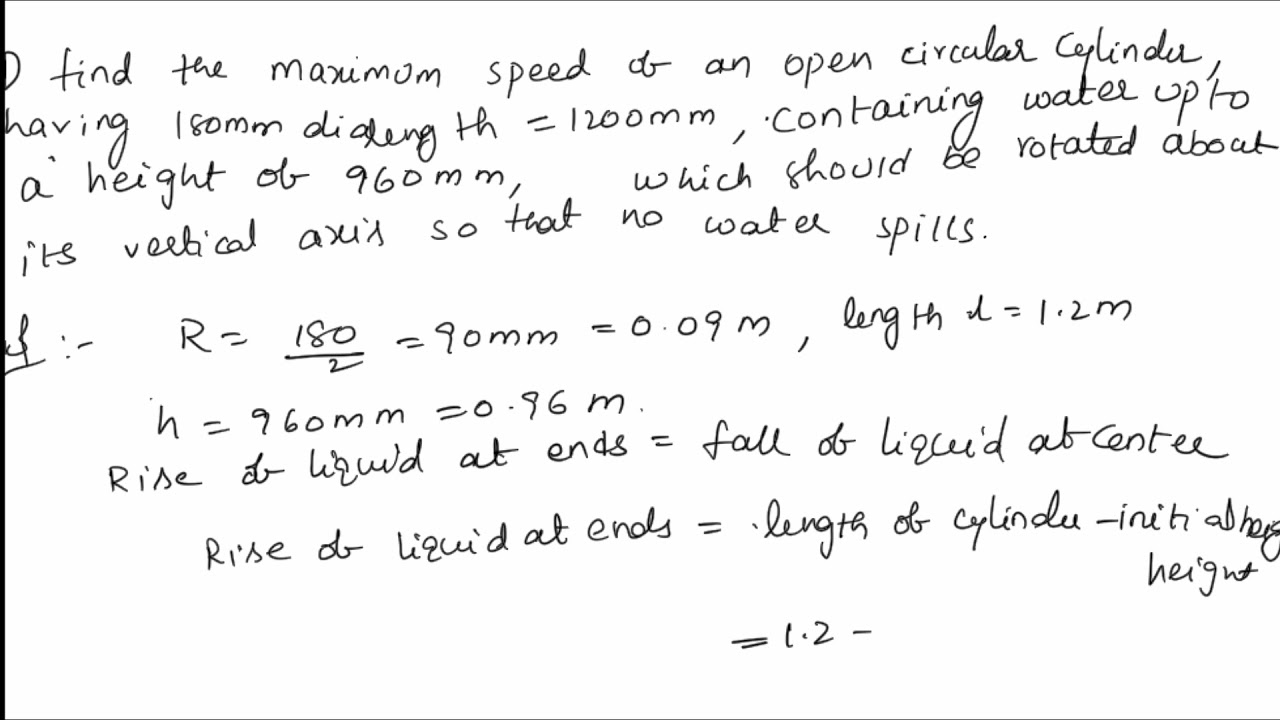 ) find the maximum speed of an open circular cylinder,
having 180mm dia length = 1200mm, containing water upto
a height of 960mm, which should be rotated about
its vertical axis so that no water spills.
:- R = 180/2 = 90mm = 0.09m, length l = 1.2m
h = 960mm = 0.96 m.
Rise of liquid at ends = fall of liquid at center
Rise of liquid at ends = length of cylinder - initial
height
= 1.2 -